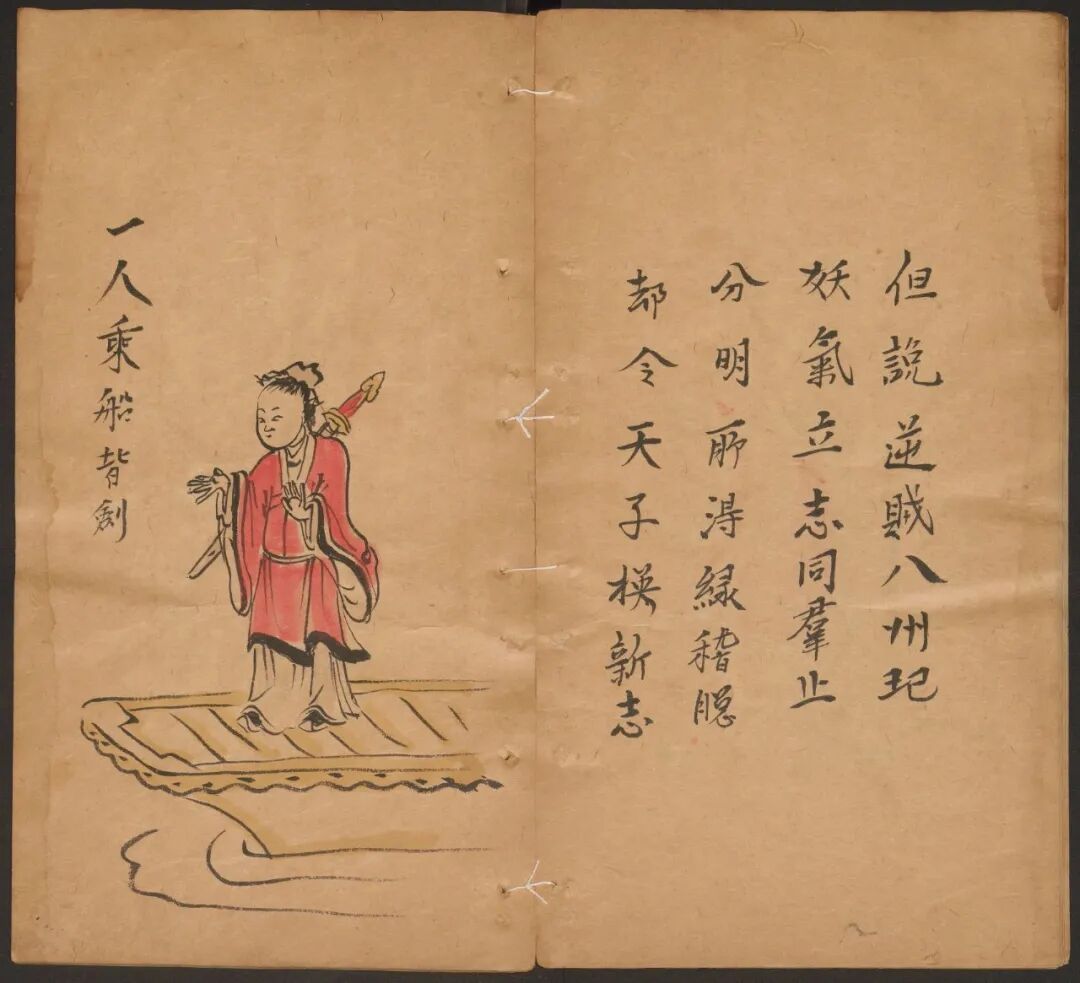 但說逆賊八州
妖氣立志同羣止
分明所淂緑稽
却令天子楧新志
一人乘船背劍